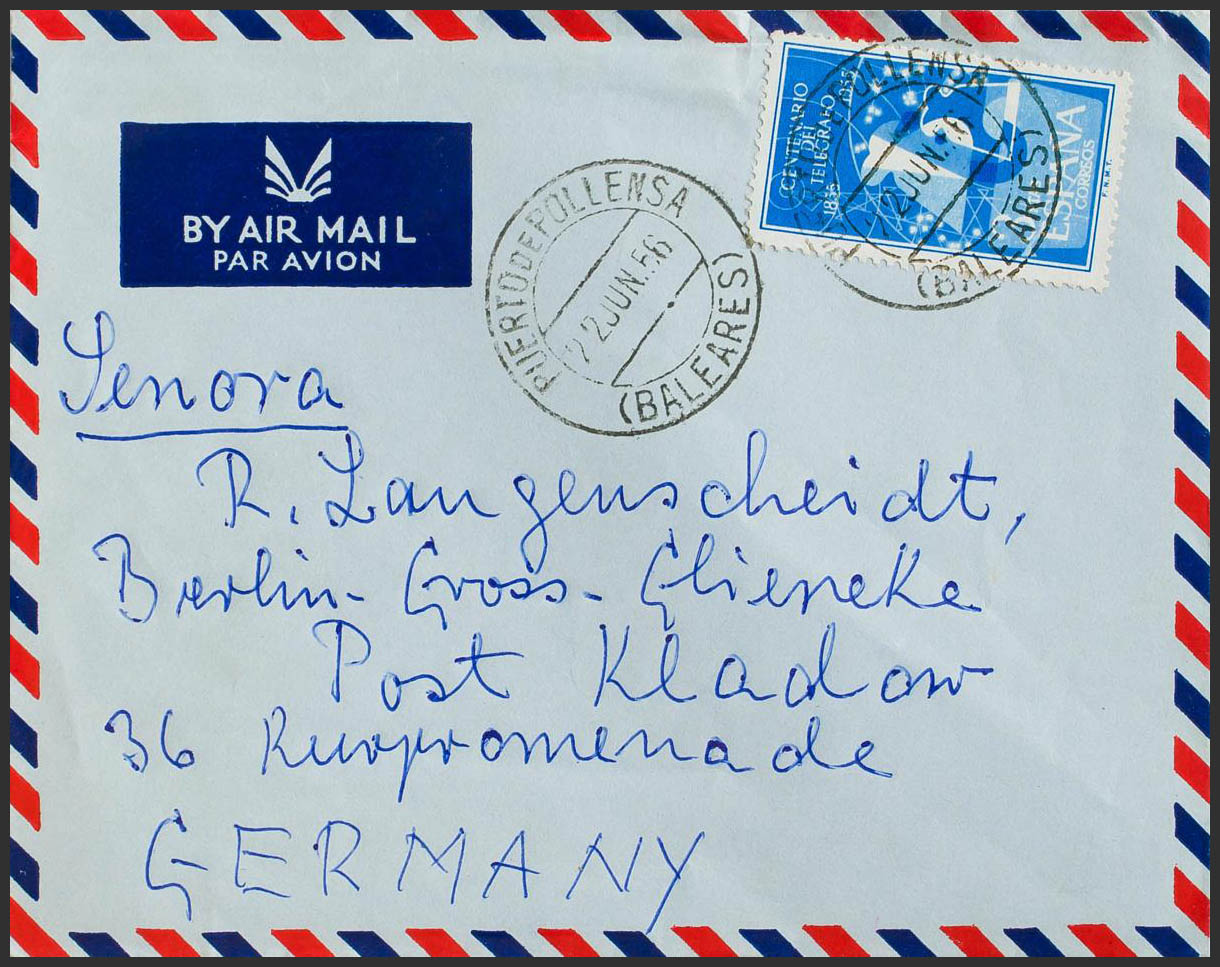 BY AIR MAIL
PAR AVION
PUERTO DE POLLENSA
22 JUN. 56
(BALEARES)
CENTENARIO
DEL
TELEGRAFO
1855 1955
ESPAÑA
CORREOS
F.N.M.T.
POLLENSA
JUN. 56
(BALEARES)
Senora
R. Langenscheidt,
Berlin- Gross- Glieneke
Post Kladow
36 Kurpromenade
GERMANY